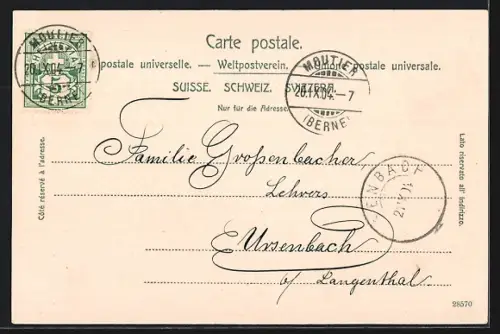 Carte postale.
postale universelle. — Weltpostverein. — Unione postale universale.
SUISSE. SCHWEIZ. SVIZZERA.
Nur für die Adresse.
MOUTIER
20.IX.04.-7
(BERNE)
5
MOUTIER
20.IX.04.-7
(BERNE)
Côté réservé à l'adresse.
Lato riservato all' indirizzo.
Familie Grossenbacher
Lehrers
Ursenbach
b/ Langenthal
ENBACH
28570